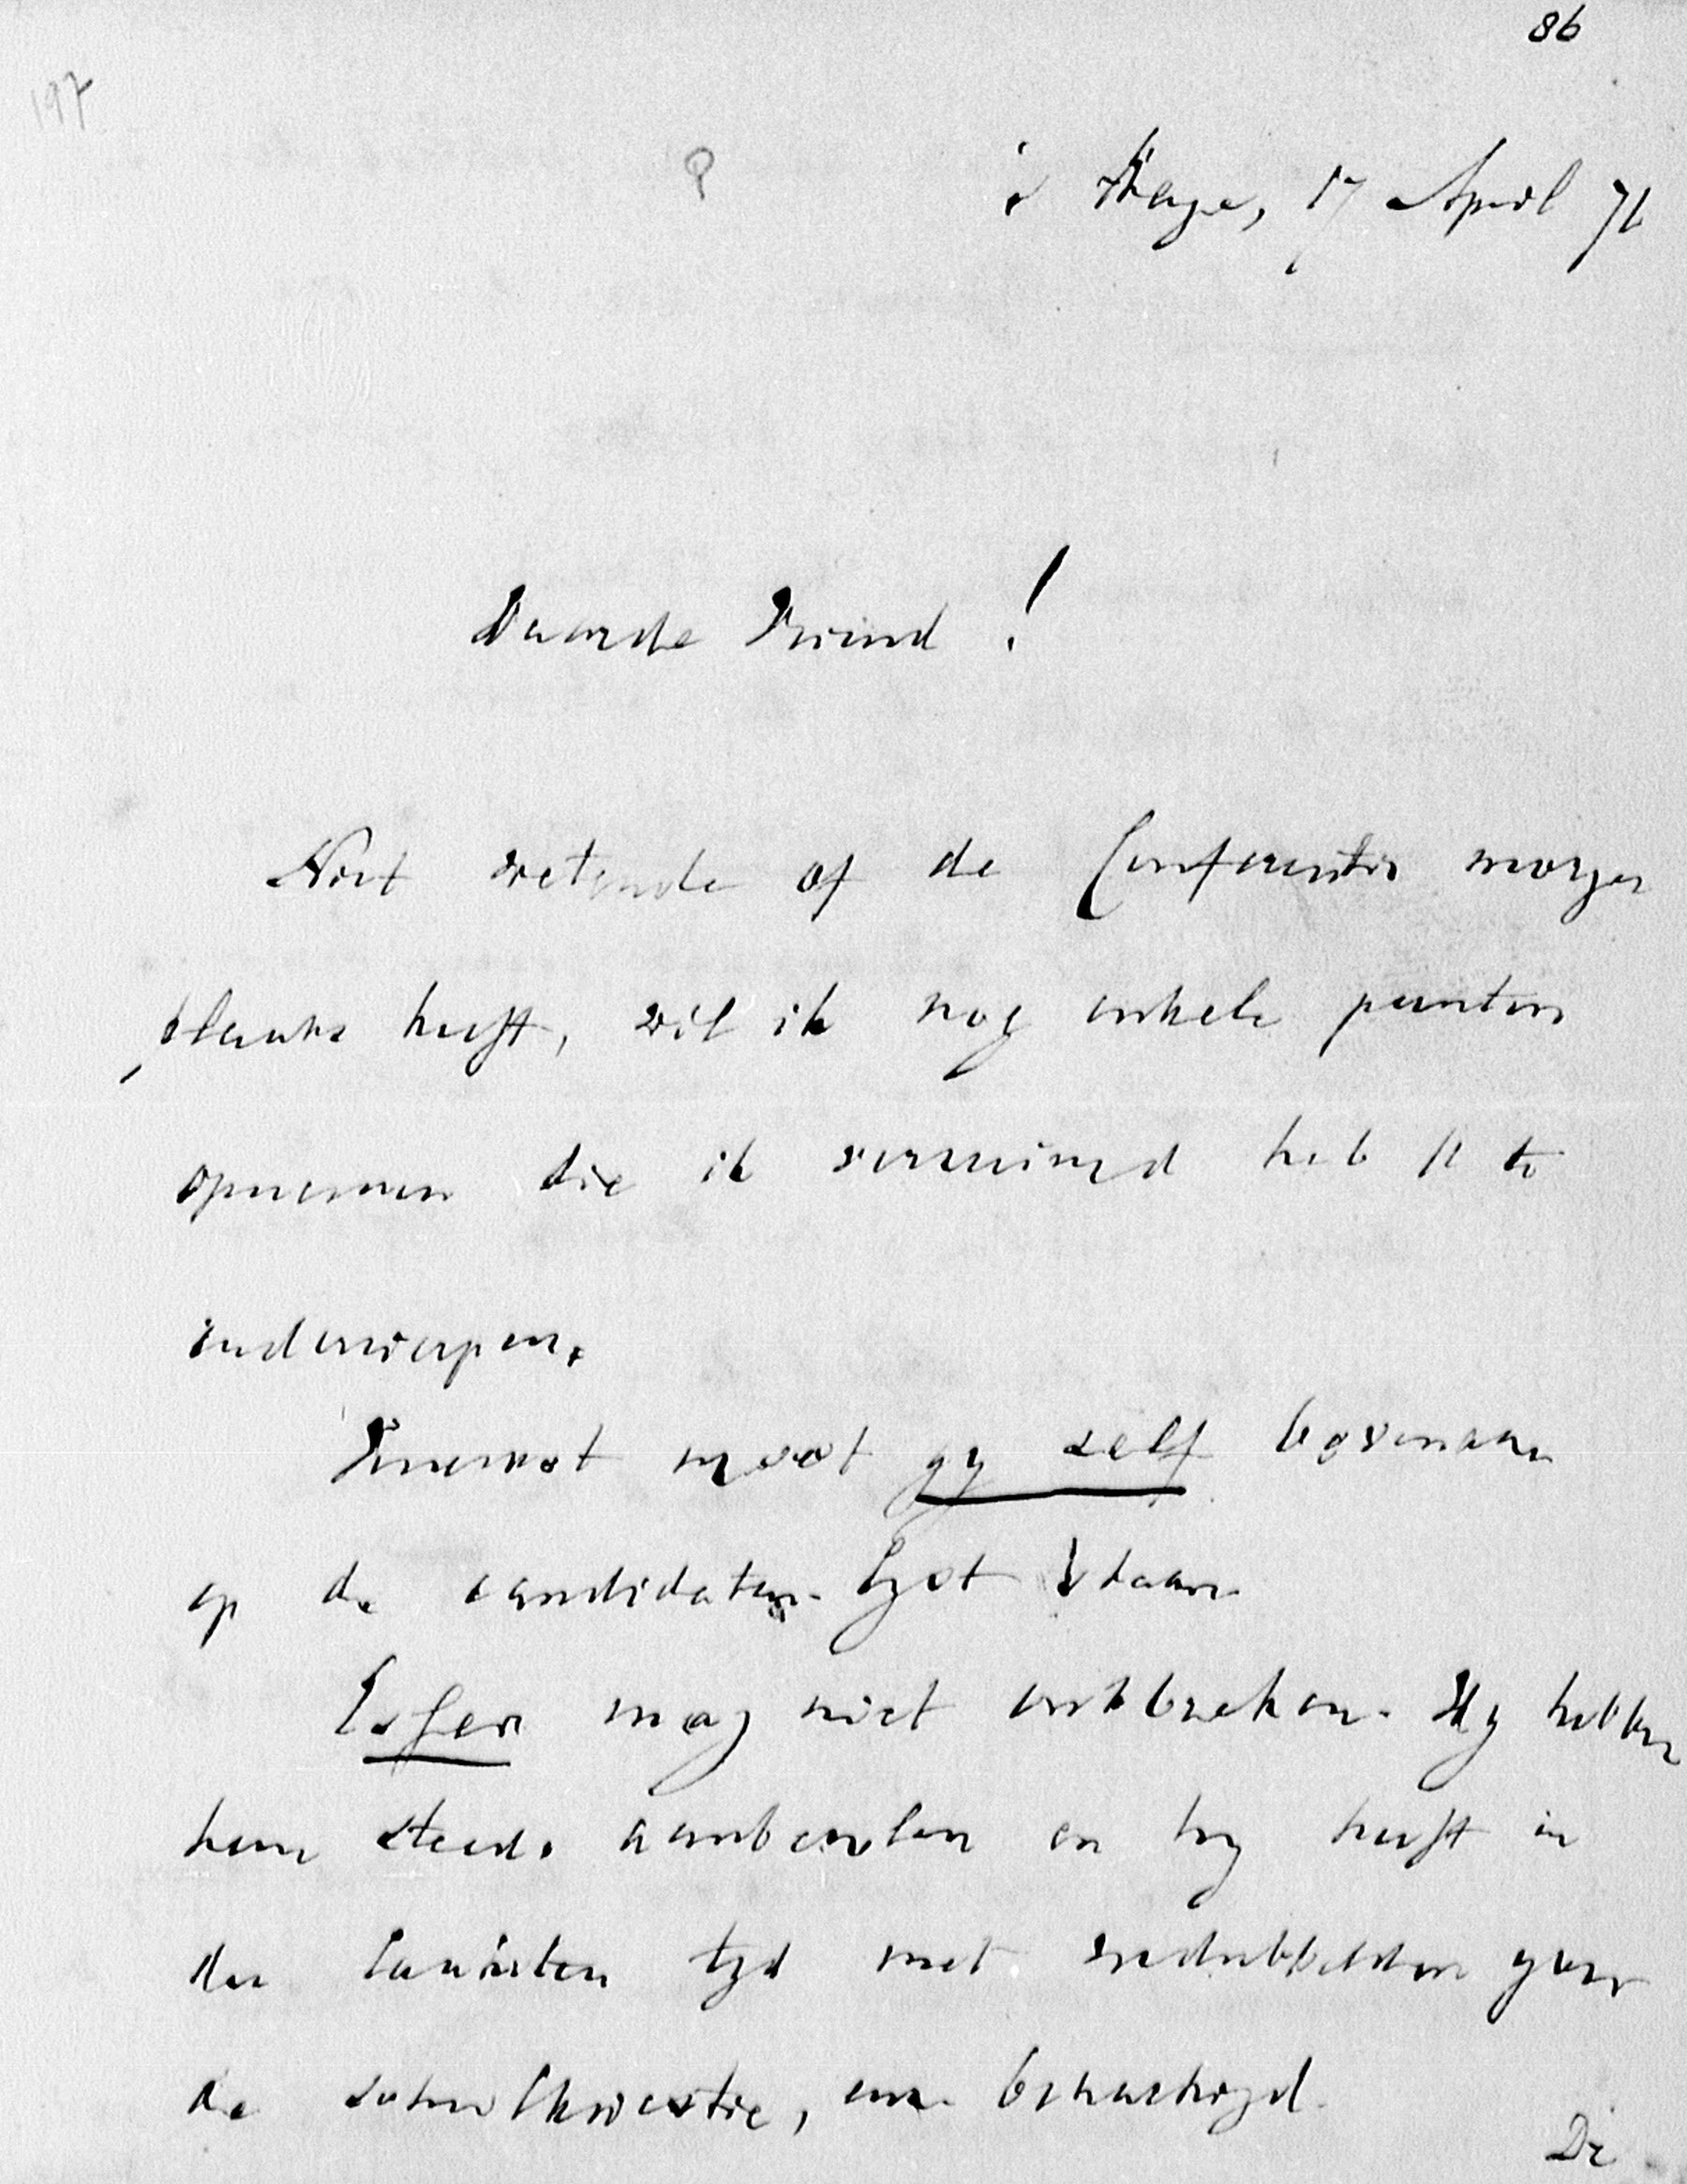 86
197
's Hage, 17 April 71
Waarde Vriend!
Niet wetende of de Conferentie morgen
plaats heeft, wil ik nog enkele punten
opnoemen die ik verzuimd heb U te
onderwerpen.
Vooreerst moet gy zelf bovenaan
op de candidaten lyst staan
Esser mag niet ontbreken. Wy hebben
hem steeds aanbevolen en hy heeft in
den laatsten tyd met verdubbelden yver
de schoolkwestie, enz. behartigd.
De